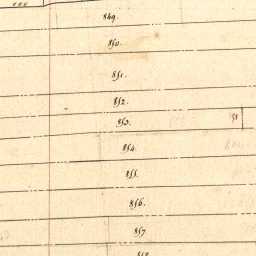 849.
850.
851.
852.
853.
854.
855.
856.
857